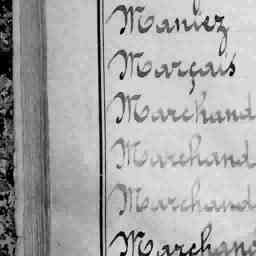 Maniez
Marçais
Marchand
Marchand
Marchand
Marchand